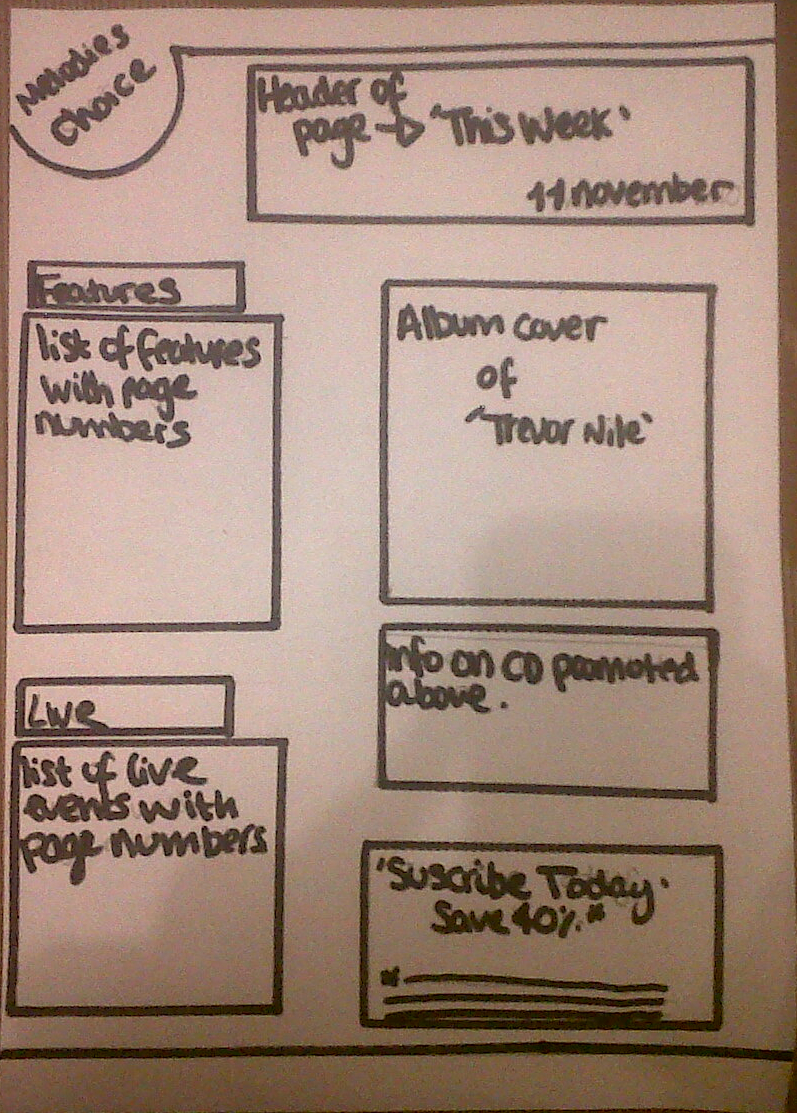 Melodies
Choice
Header of
page → 'This Week'
11 november
Features
list of features
with page
numbers
Album cover
of
'Trevor Nile'
info on CD promoted
above.
Live
list of live
events with
page numbers
'Suscribe Today'
Save 40%*
*